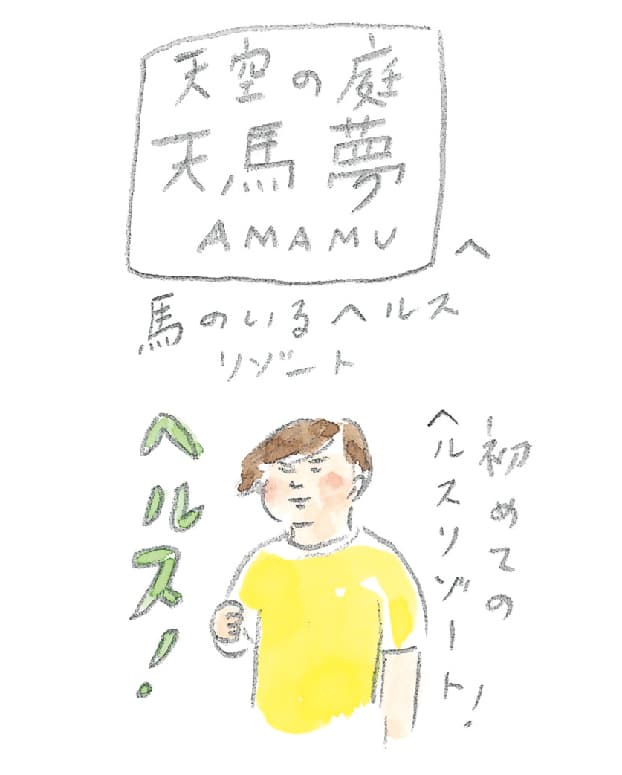 天空の庭
天馬夢
AMAMU
へ
馬のいるヘルス
リゾート
初めての
ヘルスリゾート！
ヘルス！